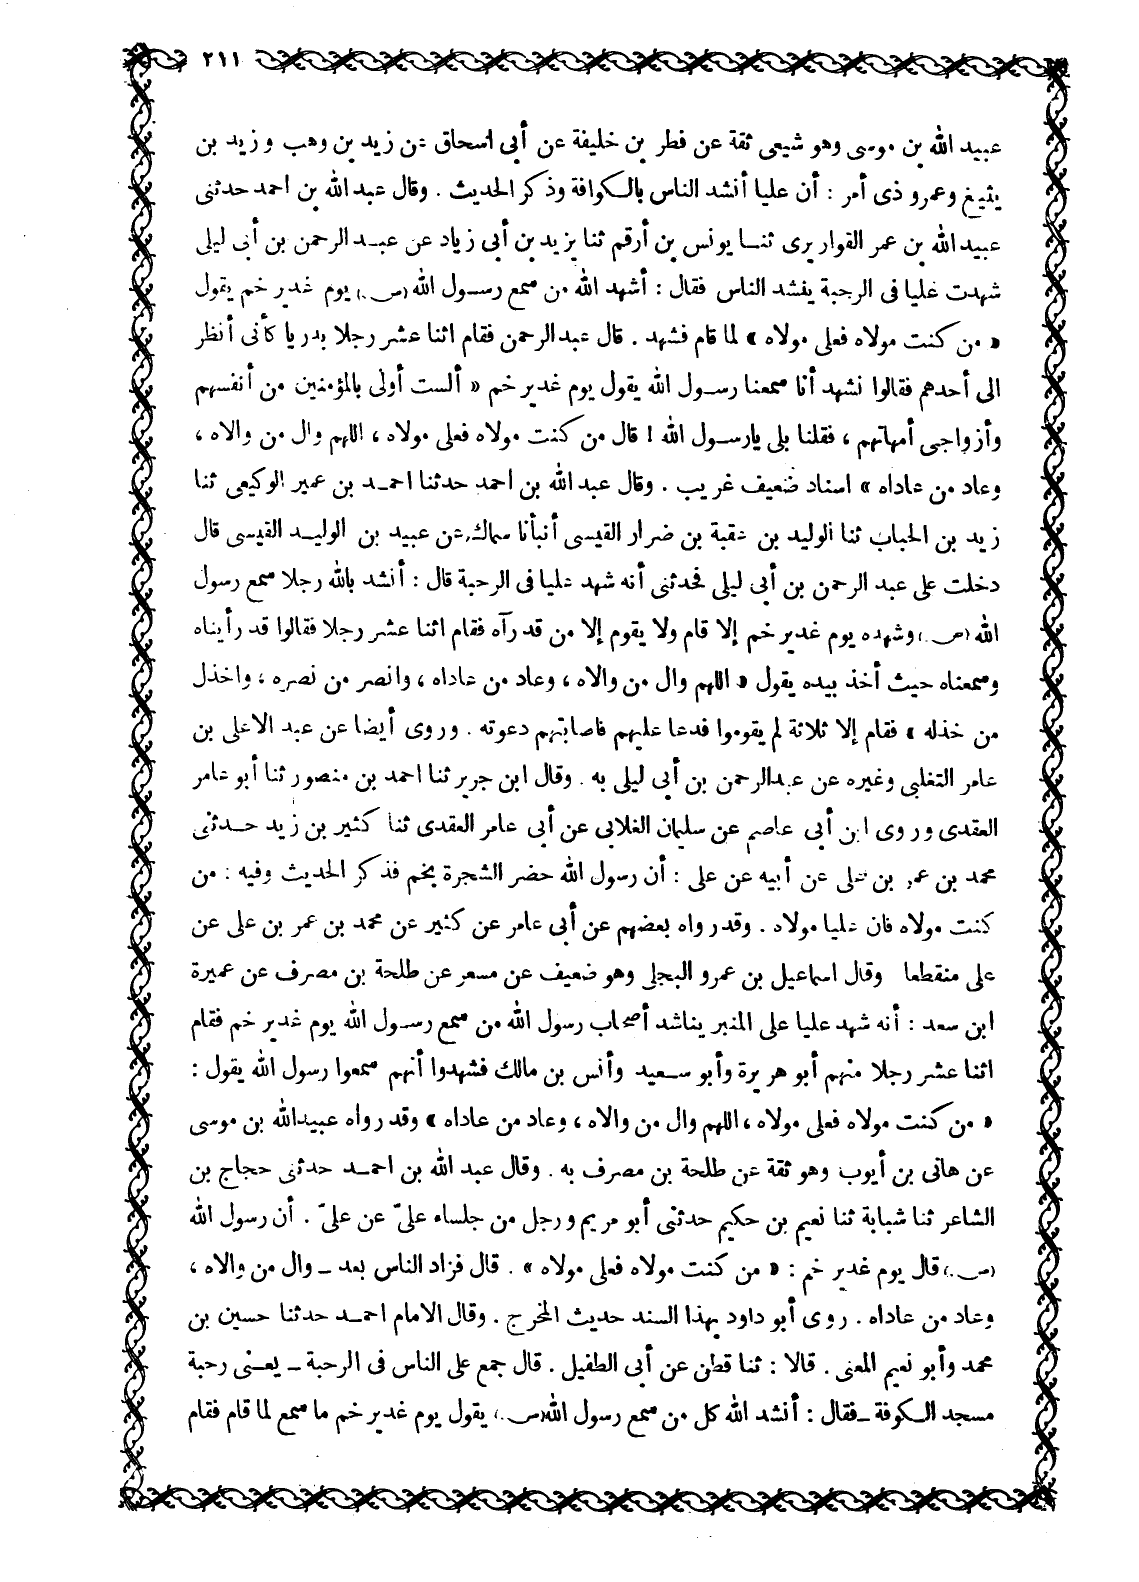 ٢١١
عبيد الله بن موسى وهو شيعى ثقة عن فطر بن خليفة عن أبى اسحاق عن زيد بن وهب وزيد بن
يثيغ وعمرو ذى أمر : أن عليا أنشد الناس بالكوافة وذكر الحديث . وقال عبد الله بن احمد حدثنى
عبيد الله بن عمر القواريرى ثنا يونس بن أرقم ثنا يزيد بن أبى زياد عن عبد الرحمن بن أبى ليلى
شهدت عليا فى الرحبة ينشد الناس فقال : أشهد الله من سمع رسول الله (ص.) يوم غدير خم يقول
« من كنت مولاه فعلى مولاه » لما قام فشهد . قال عبد الرحمن فقام اثنا عشر رجلا بدريا كأنى أنظر
الى أحدهم فقالوا نشهد أنا سمعنا رسول الله يقول يوم غدير خم « ألست أولى بالمؤمنين من أنفسهم
وأزواجى أمهاتهم ، فقلنا بلى يارسول الله ! قال من كنت مولاه فعلى مولاه ، اللهم وال من والاه ،
وعاد من عاداه » اسناد ضعيف غريب . وقال عبد الله بن احمد حدثنا احمد بن عمير الوكيعى ثنا
زيد بن الحباب ثنا الوليد بن عقبة بن ضرار القيسى أنبأنا سماك عن عبيد بن الوليد القيسى قال
دخلت على عبد الرحمن بن أبى ليلى فحدثنى أنه شهد عليا فى الرحبة قال : أنشد بالله رجلا سمع رسول
الله (ص.) وشهده يوم غدير خم إلا قام ولا يقوم إلا من قد رآه فقام اثنا عشر رجلا فقالوا قد رأيناه
وسمعناه حيث أخذ بيده يقول « اللهم وال من والاه ، وعاد من عاداه ، وانصر من نصره ، واخذل
من خذله » فقام إلا ثلاثة لم يقوموا فدعا عليهم فاصابتهم دعوته . وروى أيضا عن عبد الاعلى بن
عامر التغلبى وغيره عن عبد الرحمن بن أبى ليلى به . وقال ابن جرير ثنا احمد بن منصور ثنا أبو عامر
العقدى وروى ابن أبى عاصم عن سليمان الغلابى عن أبى عامر العقدى ثنا كثير بن زيد حدثنى
محمد بن عمر بن على عن أبيه عن على : أن رسول الله حضر الشجرة بخم فذكر الحديث وفيه : من
كنت مولاه فان عليا مولاه . وقد رواه بعضهم عن أبى عامر عن كثير عن محمد بن عمر بن على عن
على منقطعا وقال اسماعيل بن عمرو البجلى وهو ضعيف عن مسعر عن طلحة بن مصرف عن عميرة
ابن سعد : أنه شهد عليا على المنبر يناشد أصحاب رسول الله من سمع رسول الله يوم غدير خم فقام
اثنا عشر رجلا منهم أبو هريرة وأبو سعيد وأنس بن مالك فشهدوا أنهم سمعوا رسول الله يقول :
« من كنت مولاه فعلى مولاه ، اللهم وال من والاه ، وعاد من عاداه » وقد رواه عبيد الله بن موسى
عن هانى بن أيوب وهو ثقة عن طلحة بن مصرف به . وقال عبد الله بن احمد حدثنى حجاج بن
الشاعر ثنا شبابة ثنا نعيم بن حكيم حدثنى أبو مريم ورجل من جلساء علىّ عن علىّ . أن رسول الله
(ص.) قال يوم غدير خم : « من كنت مولاه فعلى مولاه » . قال فزاد الناس بعد ـ وال من والاه ،
وعاد من عاداه . روى أبو داود بهذا السند حديث المخرج . وقال الامام احمد حدثنا حسين بن
محمد وأبو نعيم المعنى . قالا : ثنا قطن عن أبى الطفيل . قال جمع على الناس فى الرحبة ـ يعنى رحبة
مسجد الكوفة ـ فقال : أنشد الله كل من سمع رسول الله (ص.) يقول يوم غدير خم ما سمع لما قام فقام